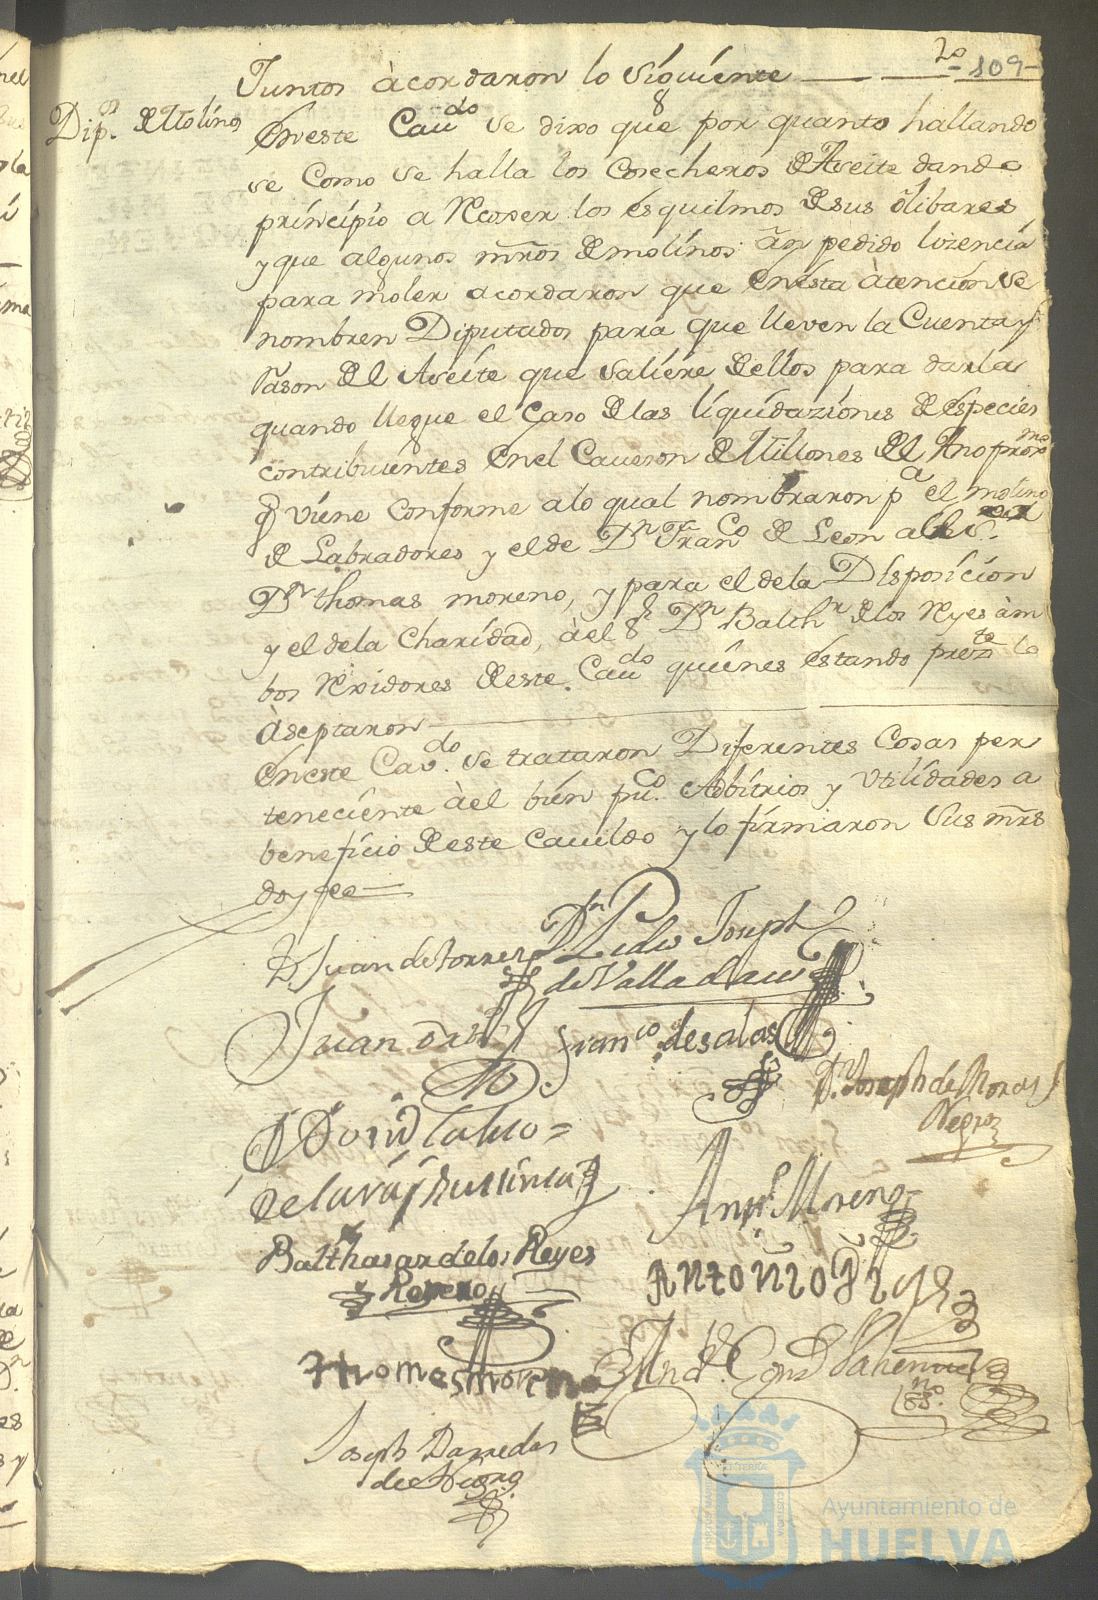 20 109
Juntos acordaron lo siguiente
Dip.s de Molinos
En este Caudo se dixo que por quanto hallando
se como se halla los Cosecheros de Aseite dando
principio a Recoxer los esquilmos de sus olibares
y que algunos mros de molinos an pedido lizencia
para moler acordaron que en esta atencion se
nombren Diputados para que lleven la Cuenta y
rason del Aseite que saliere dellos para darla
quando llegue el caso de las liquidaziones de especies
contribuientes en el Caueson de Millones del Año proxmo
q viene conforme a lo qual nombraron pa el molino
de Labradores y el de Dn Franco de Leon al
Dn Thomas moreno, y para el de la Disposicion
y el de la Charidad, a el Sr Dn Balthr de los Reyes am
bos Rexidores deste Caudo quienes estando prezte lo
aseptaron
En este Cavdo se trataron Diferentes Cosas per
teneciente a el bien puco Adbitrios y Utilidades a
beneficio deste Cauildo y lo firmaron Sus mrs
doy fee
D Juan de Torres
Dn Pedro Joseph
de Valladares
Juan
Franco de salas
Dn Joseph de
Negro
de lara y
Anto Moreno
Balthasar de los Reyes
Antonio
Thomas moreno
And
Joseph
Ayuntamiento de
HUELVA